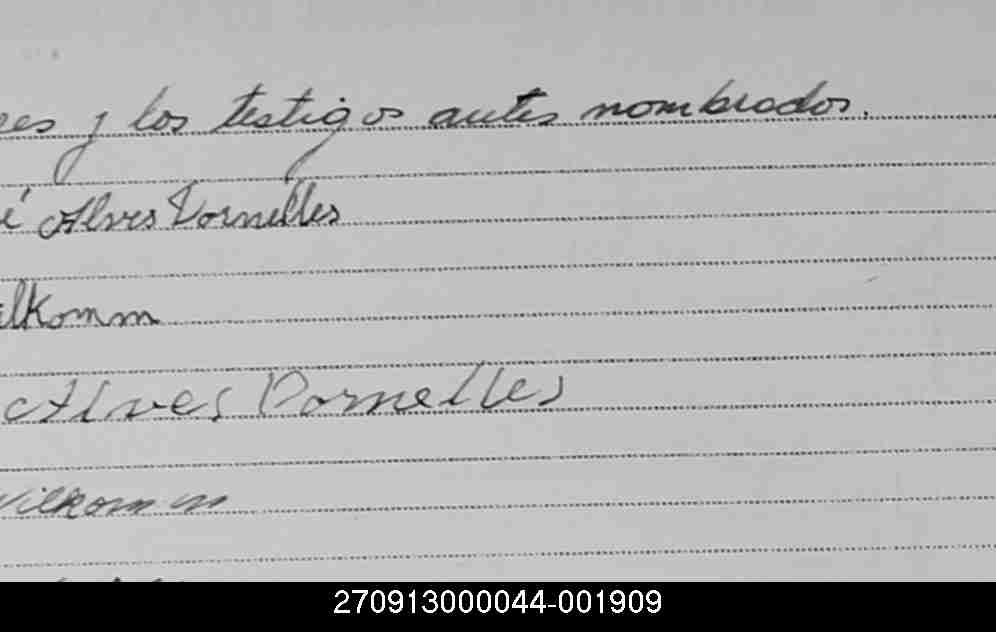 es y los testigos antes nombrados.
é Alves Dornelles
ilkomm
Alves Dornelles
Wilkomm
270913000044-001909